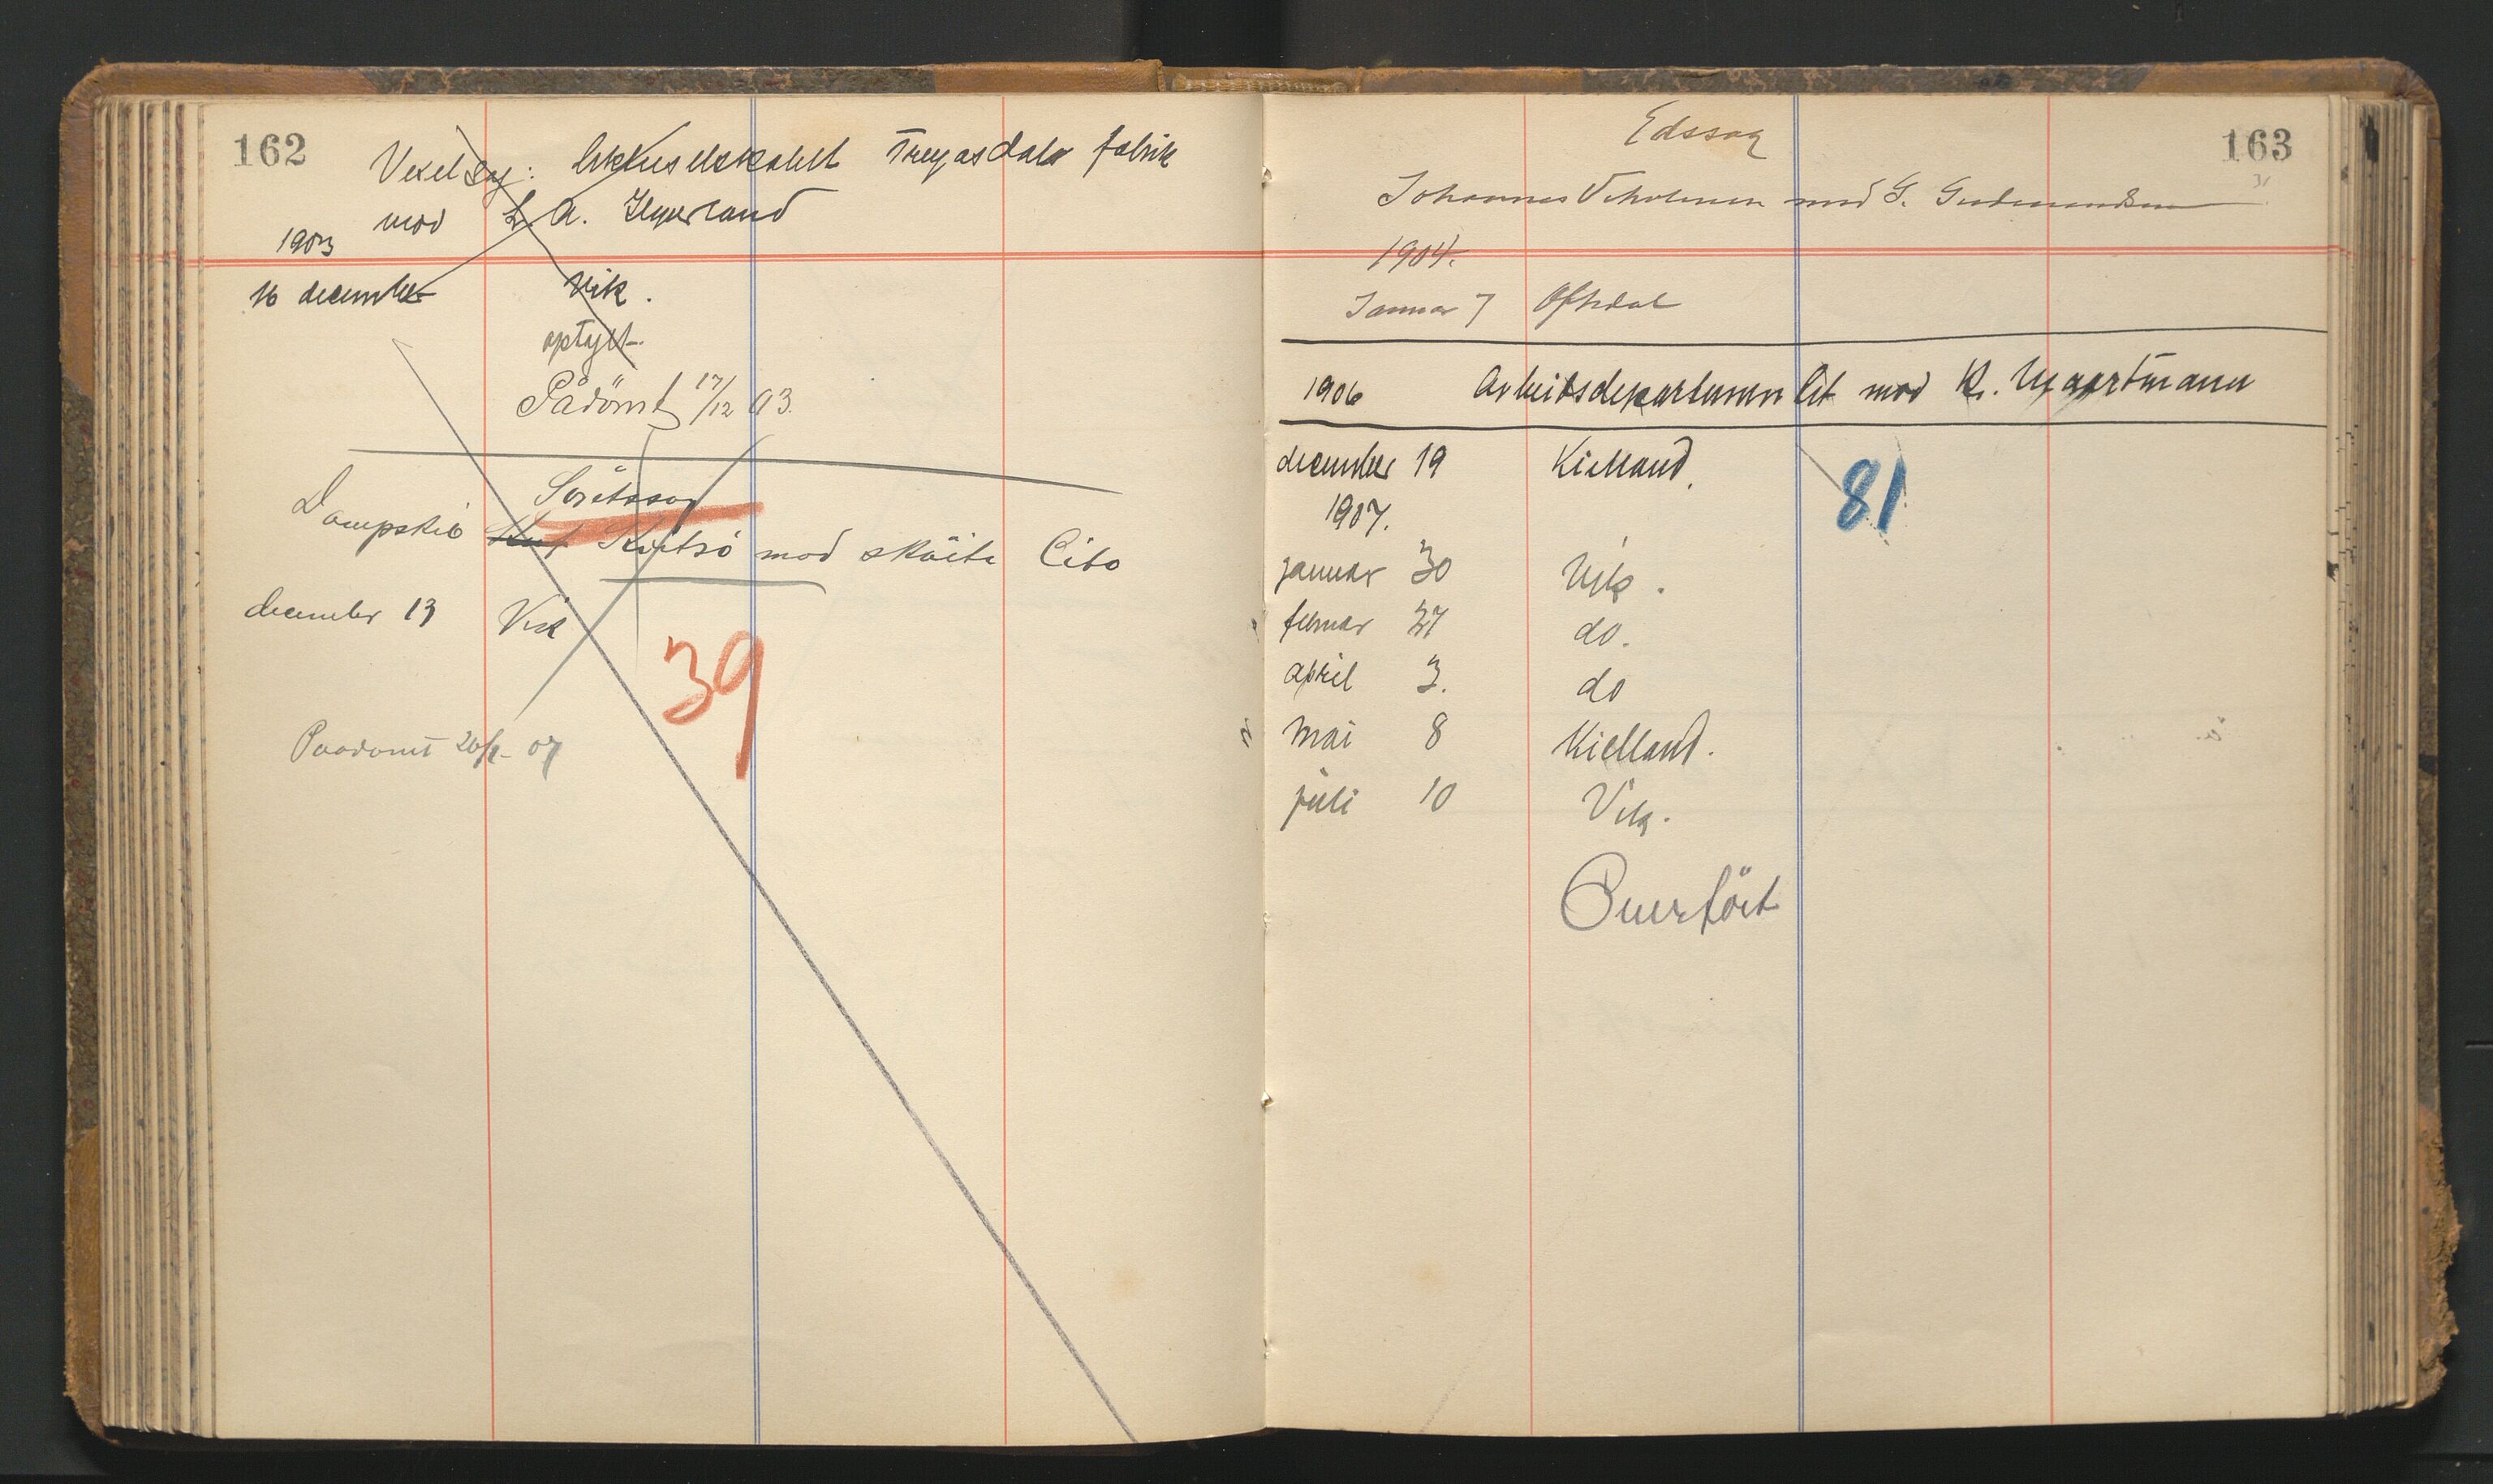 162
Vexelsag: Aktieselskabet Trengereds fabrik
mod L. A. Egerland
1903
16 december Vik.
optaget.
Pådömt 17/12 03.
Sjöretssag
Dampskib Kvitsö mod sköite Cito
december 13 Vik
39
Paadömt 20/2-07
163
31
Edssag
Johannes Viholmen mod G. Gudmundsen
1904.
Januar 7 Oftedal
1906 Arbeidsdepartementet mod K. Maartmann
december 19 Kielland.
81
1907.
januar 30 Vik.
februar 27 do.
april 3. do
mai 8 Kielland.
juli 10 Vik.
Overfört